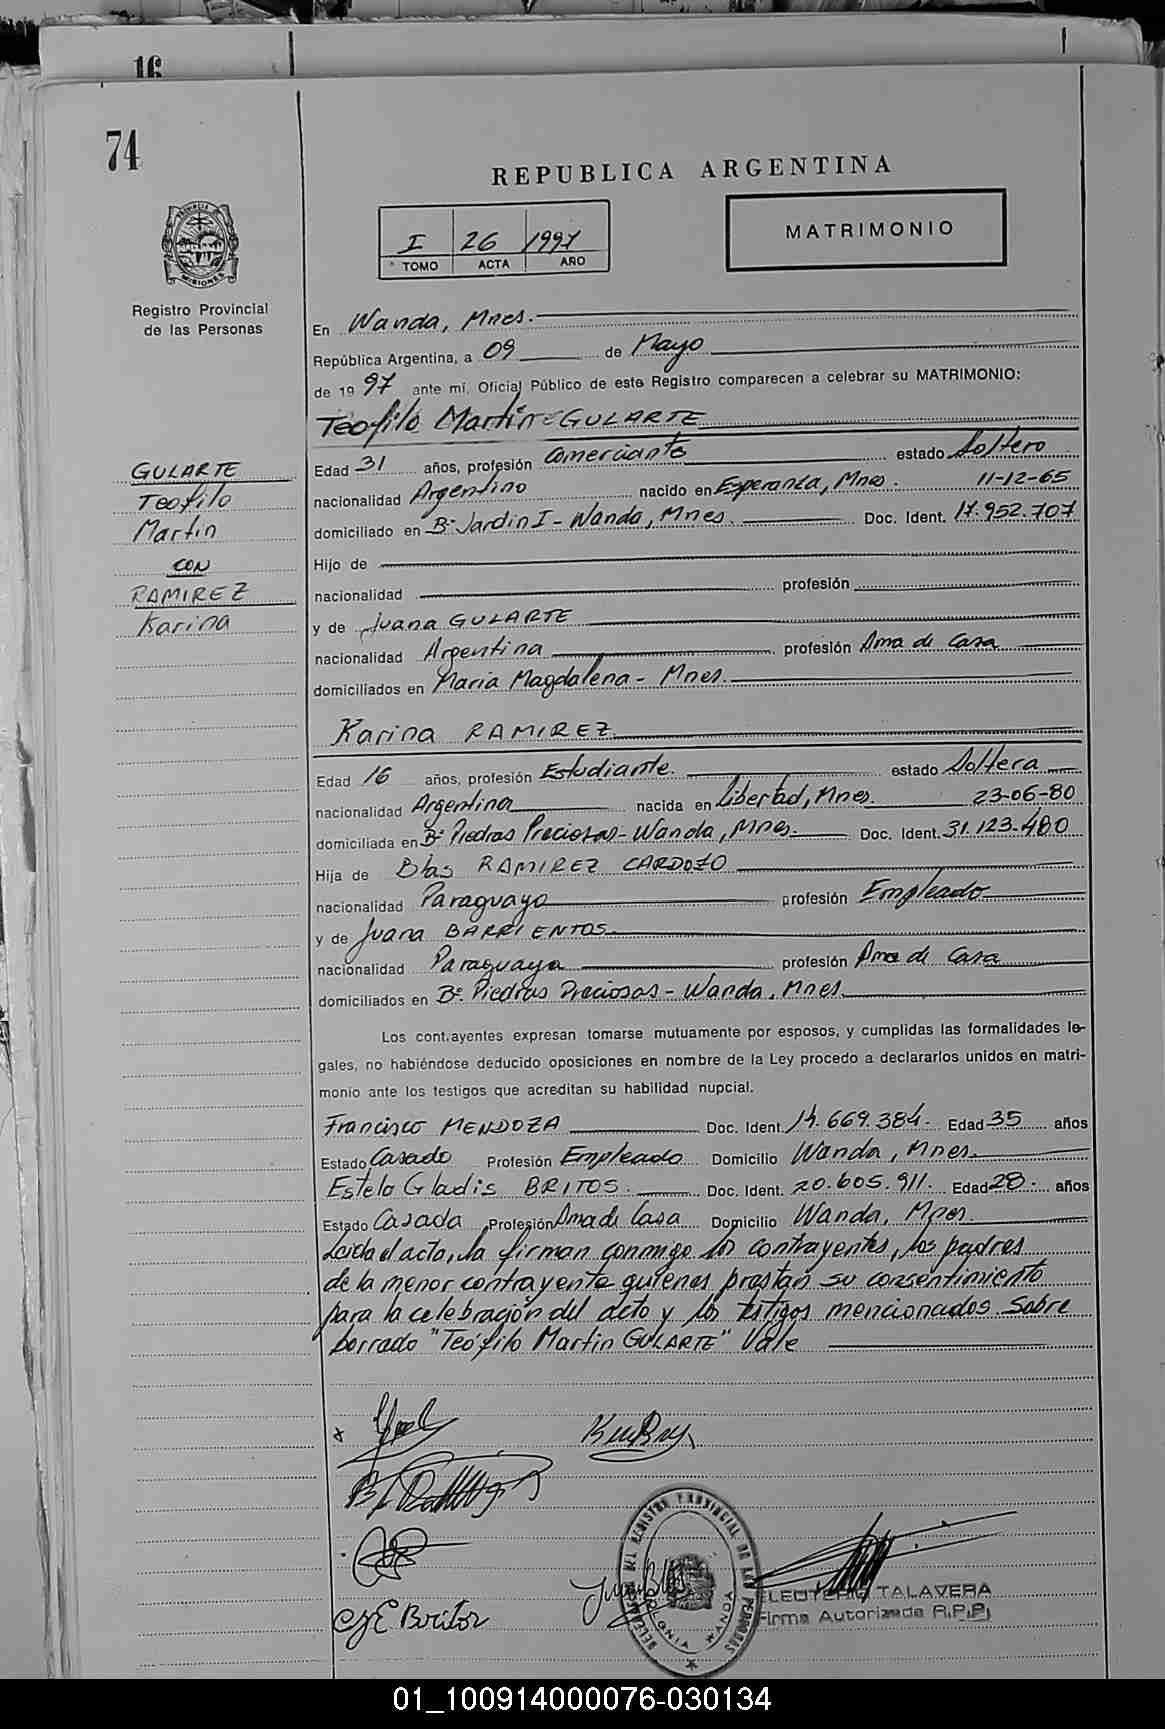 16
74
REPUBLICA ARGENTINA
I 26 1997
TOMO ACTA AÑO
MATRIMONIO
PROVINCIA DE MISIONES
Registro Provincial
de las Personas
En Wanda, Mnes.
República Argentina, a 09 de Mayo
de 1997 ante mí, Oficial Público de este Registro comparecen a celebrar su MATRIMONIO:
Teófilo Martin GULARTE
GULARTE
Teofilo
Martin
CON
RAMIREZ
Karina
Edad 31 años, profesión Comerciante estado Soltero
nacionalidad Argentino nacido en Esperanza, Mnes. 11-12-65
domiciliado en Bº Jardin I - Wanda, Mnes. Doc. Ident. 17.952.707
Hijo de
nacionalidad profesión
y de Juana GULARTE
nacionalidad Argentina profesión Ama de Casa
domiciliados en Maria Magdalena - Mnes.
Karina RAMIREZ
Edad 16 años, profesión Estudiante. estado Soltera
nacionalidad Argentina nacida en Libertad, Mnes. 23-06-80
domiciliada en Bº Piedras Preciosas - Wanda, Mnes. Doc. Ident. 31.123.480
Hija de Blas RAMIREZ CARDOZO
nacionalidad Paraguayo profesión Empleado
y de Juana BARRIENTOS
nacionalidad Paraguaya profesión Ama de Casa
domiciliados en Bº Piedras Preciosas - Wanda, Mnes.
Los contrayentes expresan tomarse mutuamente por esposos, y cumplidas las formalidades le-
gales, no habiéndose deducido oposiciones en nombre de la Ley procedo a declararlos unidos en matri-
monio ante los testigos que acreditan su habilidad nupcial.
Francisco MENDOZA Doc. Ident. 14.669.384. Edad 35 años
Estado Casado Profesión Empleado Domicilio Wanda, Mnes.
Estela Gladis BRITOS. Doc. Ident. 20.605.911. Edad 28. años
Estado Casada Profesión Ama de Casa Domicilio Wanda, Mnes.
Leída el acta, la firman conmigo los contrayentes, los padres
de la menor contrayente quienes prestan su consentimiento
para la celebración del acto y los testigos mencionados. Sobre
borrado "Teófilo Martin GULARTE" Vale
DEL REGISTRO PROVINCIAL DE LAS PERSONAS
COLONIA WANDA
EGE Britos
ELEUTERIO TALAVERA
Firma Autorizada R.P.P.
01_100914000076-030134